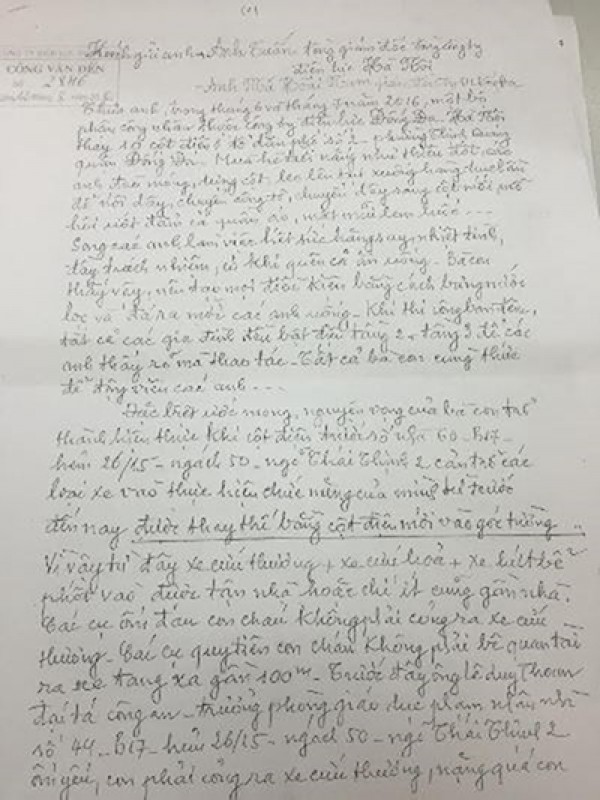 (1)
Kính gửi anh - Anh Tuấn tổng giám đốc tổng công ty
CÔNG VĂN ĐẾN
điện lực Hà Nội
- Anh Mã Hoài Nam giám đốc Cty ĐL Đống Đa
Thưa anh, trong tháng 6 và tháng 7 năm 2016, một bộ
phận công nhân thuộc công ty điện lực Đống Đa - Hà Nội
thay 10 cột điện ở tổ dân phố số 2 - phường Thịnh Quang
quận Đống Đa. Mùa hè trời nắng như thiêu đốt, các
anh đào móng, dựng cột, leo lên tụt xuống hàng chục lần
để nối dây, chuyển công tơ, chuyển dây sang cột mới, mồ
hôi ướt đẫm cả quần áo, mặt mũi lem luốc ...
Song các anh làm việc hết sức hăng say, nhiệt tình,
đầy trách nhiệm, có khi quên cả ăn uống. Bà con
thấy vậy, nên tạo mọi điều kiện bằng cách bưng nước
lọc và đá ra mời các anh uống. Khi thi công ban đêm,
tất cả các gia đình đều bật điện tầng 2, tầng 3 để các
anh thấy rõ mà thao tác. Tất cả bà con cùng thức
để động viên các anh ...
Đặc biệt ước mong, nguyện vọng của bà con trở
thành hiện thực khi cột điện trước số nhà 60 - B17 -
hẻm 26/15 - ngách 50 - ngõ Thái Thịnh 2 cản trở các
loại xe vào thực hiện chức năng của mình từ trước
đến nay được thay thế bằng cột điện mới vào góc tường ..
Vì vậy từ đây xe cứu thương + xe cứu hoả + xe hút bể
phốt vào được tận nhà hoặc chí ít cũng gần nhà.
Các cụ ốm đau con cháu không phải cõng ra xe cứu
thương. Các cụ quy tiên con cháu không phải bê quan tài
ra xe tang xa gần 100m. Trước đây ông Lê Duy Tham
đại tá công an - trưởng phòng giáo dục phạm nhân nhà
số 44 - B17 - hẻm 26/15 - ngách 50 - ngõ Thái Thịnh 2
ốm yếu, con phải cõng ra xe cứu thương, nặng quá con